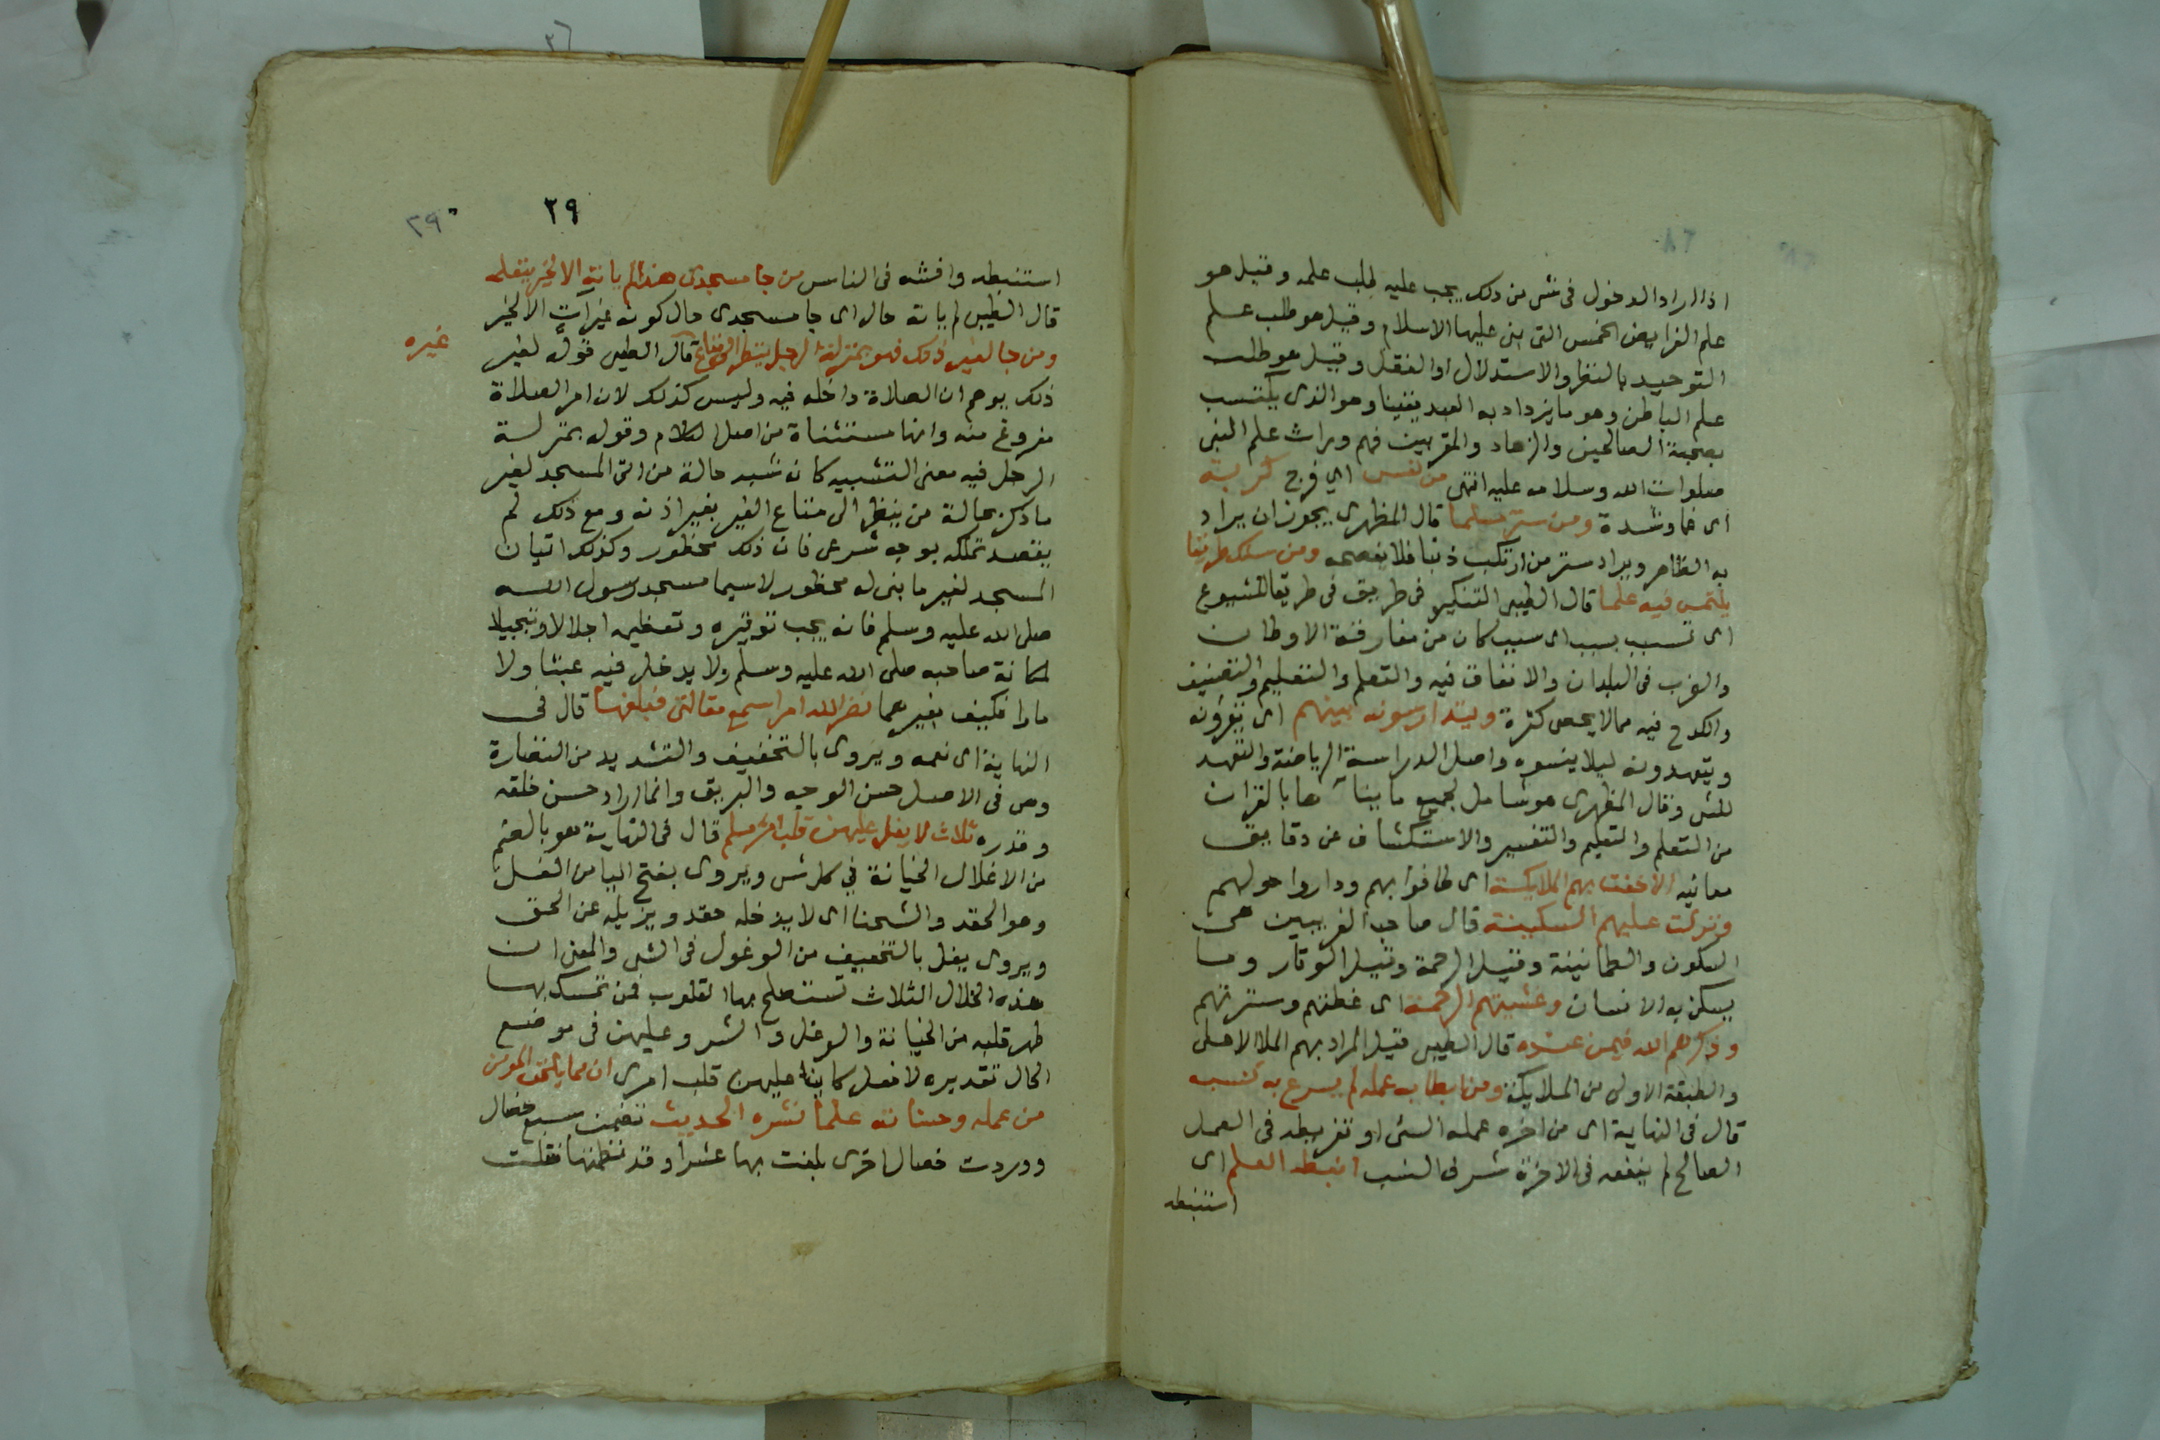 اذا اراد الدخول فى شى من ذلك يجب عليه طلب علمه وقيل هو
علم الفرايض الخمس التى بنى عليها الاسلام وقيل هو طلب علم
التوحيد بالنظر والاستدلال او النقل وقيل هو طلب
علم الباطن وهو ما يزداد به العبد يقينا وهو الذى يكتسب
بصحبة الصالحين والزهاد والمقربين فهم وراث علم النبى
صلوات الله وسلامه عليه انتهى من نفس اي فرج كربة
اى غما وشدة ومن ستر مسلما قال المظهرى يجوز ان يراد
به الظاهر ويراد ستر من ارتكب ذنبا فلا يفضحه ومن سلك طريقا
يلتمس فيه علما قال الطيبى التنكير فى طريق فى طريقا للشيوع
اى تسبب بسبب اى سبب كان من مفارقة الاوطان
والضرب فى البلدان والانفاق فيه والتعلم والتعليم والتصنيف
والكدح فيه مما لا يحصى كثرة ويتدارسونه بينهم اى يقرؤنه
ويتعهدونه ليلا ينسوه واصل الدراسة الرياضة والتعهد
للشى وقال المظهرى هو شامل لجميع ما يناط بالقران
من التعلم والتعليم والتفسير والاستكشاف عن دقايق
معانيه الا حفت بهم الملايكة اى طافوا بهم وداروا حولهم
ونزلت عليهم السكينة قال صاحب الغريبين هى
السكون والطمانينة وقيل الرحمة وقيل الوقار وما
يسكن به الانسان وغشيتهم الرحمة اى غطتهم وسترتهم
وذكرهم الله فيمن عنده قال الطيبى قيل المراد بهم الملا الاعلى
والطبقة الاولى من الملايكة ومن ابطا به عمله لم يسرع به نسبه
قال فى النهاية اى من اخره عمله السئ او تفريطه فى العمل
الصالح لم ينفعه فى الاخرة شرف النسب انبطه العلم اى
استنبطه
٢٩
٢٩
استنبطه وافشه فى الناس من جا مسجدى هذا لم ياته الا لخير يتعلمه
قال الطيبى لم ياته حال اى جا مسجدى حال كونه غير آت الا لخير
ومن جا لغير ذلك فهو بمنزلة الرجل ينظر الى متاع قال الطيبى قوله لغير
غيره
ذلك يوهم ان الصلاة داخله فيه وليس كذلك لان امر الصلاة
مفروغ منه وانها مستثناة من اصل الكلام وقوله بمنزلة
الرجل فيه معنى التشبيه كانه شبه حالة من اتى المسجد لغير
ما ذكر بحالة من ينظر الى متاع الغير بغير اذنه ومع ذلك لم
يقصد تملكه بوجه شرعى فان ذلك محظور وكذلك اتيان
المسجد لغير ما بنى له محظور لاسيما مسجد رسول الله
صلى الله عليه وسلم فانه يجب توقيره وتعظيمه اجلالا وتبجيلا
لمكانة صاحبه صلى الله عليه وسلم ولا يدخل فيه عبثا ولا
مارا فكيف بغيرهما نضر الله امرا سمع مقالتى فبلغها قال فى
النهاية اى نعمه ويروى بالتخفيف والتشديد من النضارة
وهى فى الاصل حسن الوجه والبريق وانما اراد حسن خلقه
وقدره ثلاث لا يغل عليهن قلب امرئ مسلم قال فى النهاية هو بالضم
من الاغلال الخيانة في كل شى ويروى بفتح اليا من الغل
وهو الحقد والشحنا اى لا يدخله حقد ويزيله عن الحق
ويروى يغل بالتخفيف من الوغول فى الشر والمعنى ان
هذه الخلال الثلاث تستصلح بها القلوب فمن تمسك بها
طهر قلبه من الخيانة والوغل والشر وعليهن فى موضع
الحال تقديره لا يغل كاينا عليهن قلب امرى ان مما يلحق المومن
من عمله وحسناته علما نشره الحديث تضمن سبع خصال
ووردت خصال اخرى بلغت بها عشرا وقد نظمتها فقلت